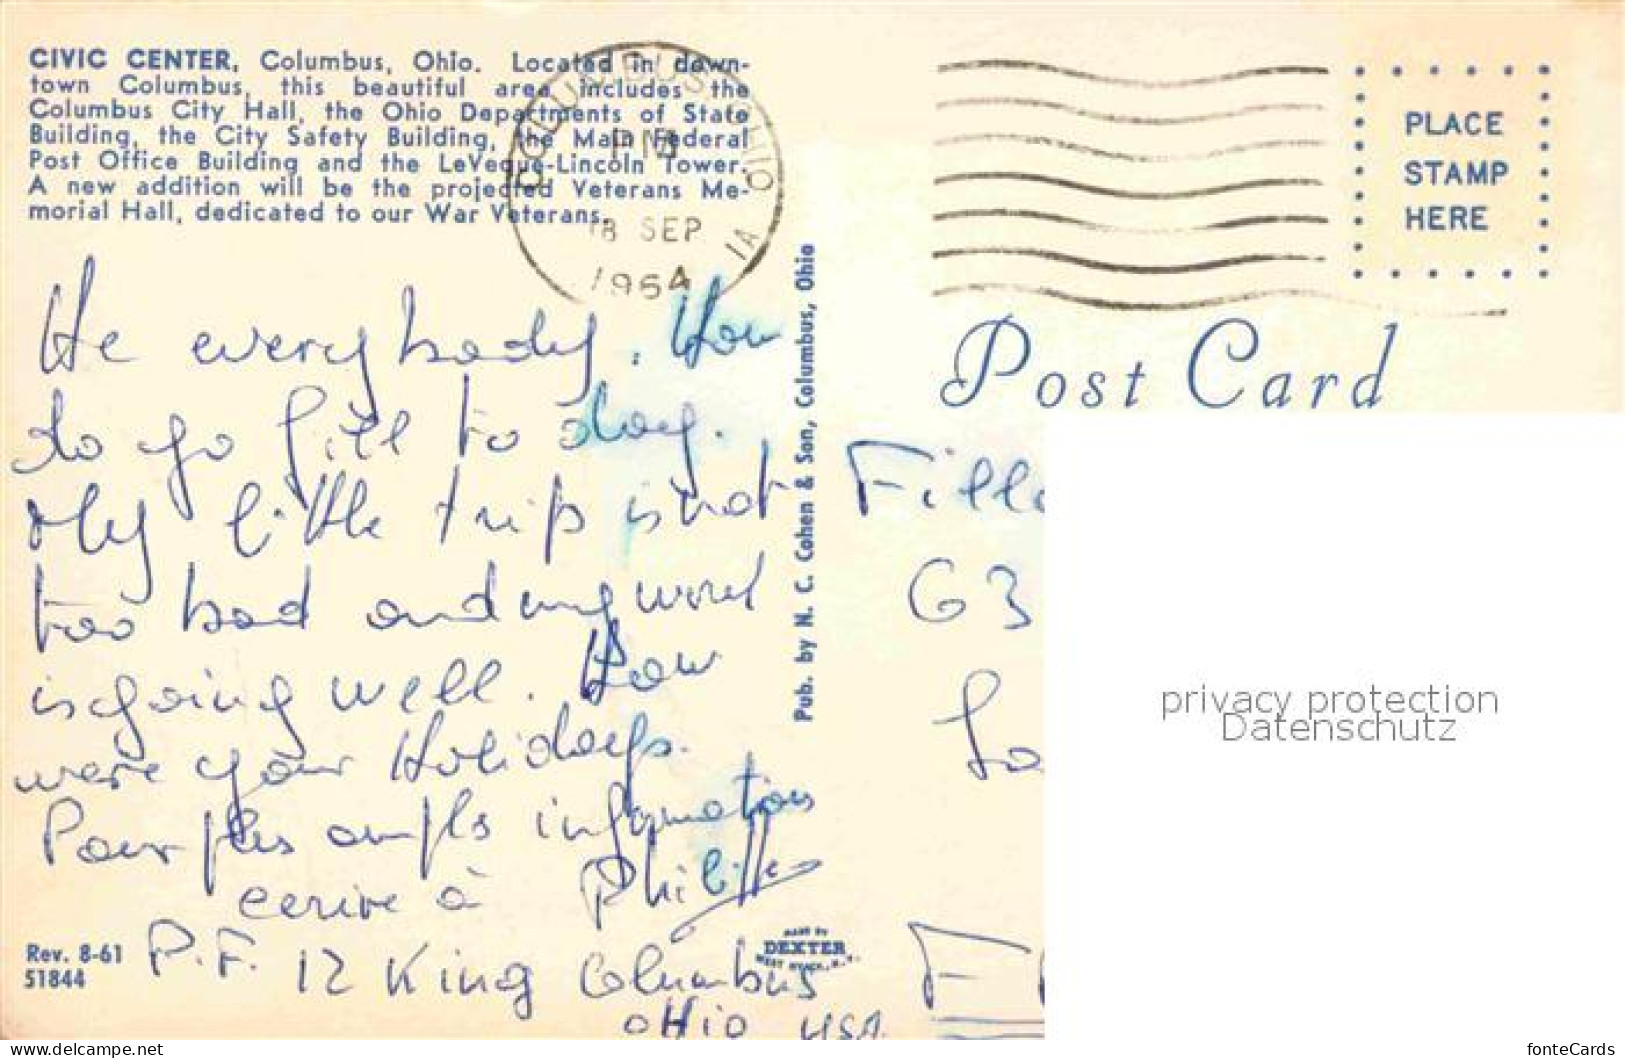 CIVIC CENTER, Columbus, Ohio. Located in down-
town Columbus, this beautiful area includes the
Columbus City Hall, the Ohio Departments of State
Building, the City Safety Building, the Main Federal
Post Office Building and the LeVeque-Lincoln Tower.
A new addition will be the projected Veterans Me-
morial Hall, dedicated to our War Veterans.
COLUMBUS, OHIO
PM
18 SEP
1964
PLACE
STAMP
HERE
Post Card
He everybody. How
do go fill to day.
My little trip is not
too bad and my word
is going well. How
were your Holidays.
Pour plus ampls informations
ecrire à Philippe
P.F. 12 King Columbus
OHio USA.
Rev. 8-61
51844
Pub. by N. C. Cohen & Son, Columbus, Ohio
MADE BY
DEXTER
WEST NYACK, N.Y.
Fill
63
privacy protection
Datenschutz
https://www.delcampe.net
fonteCards